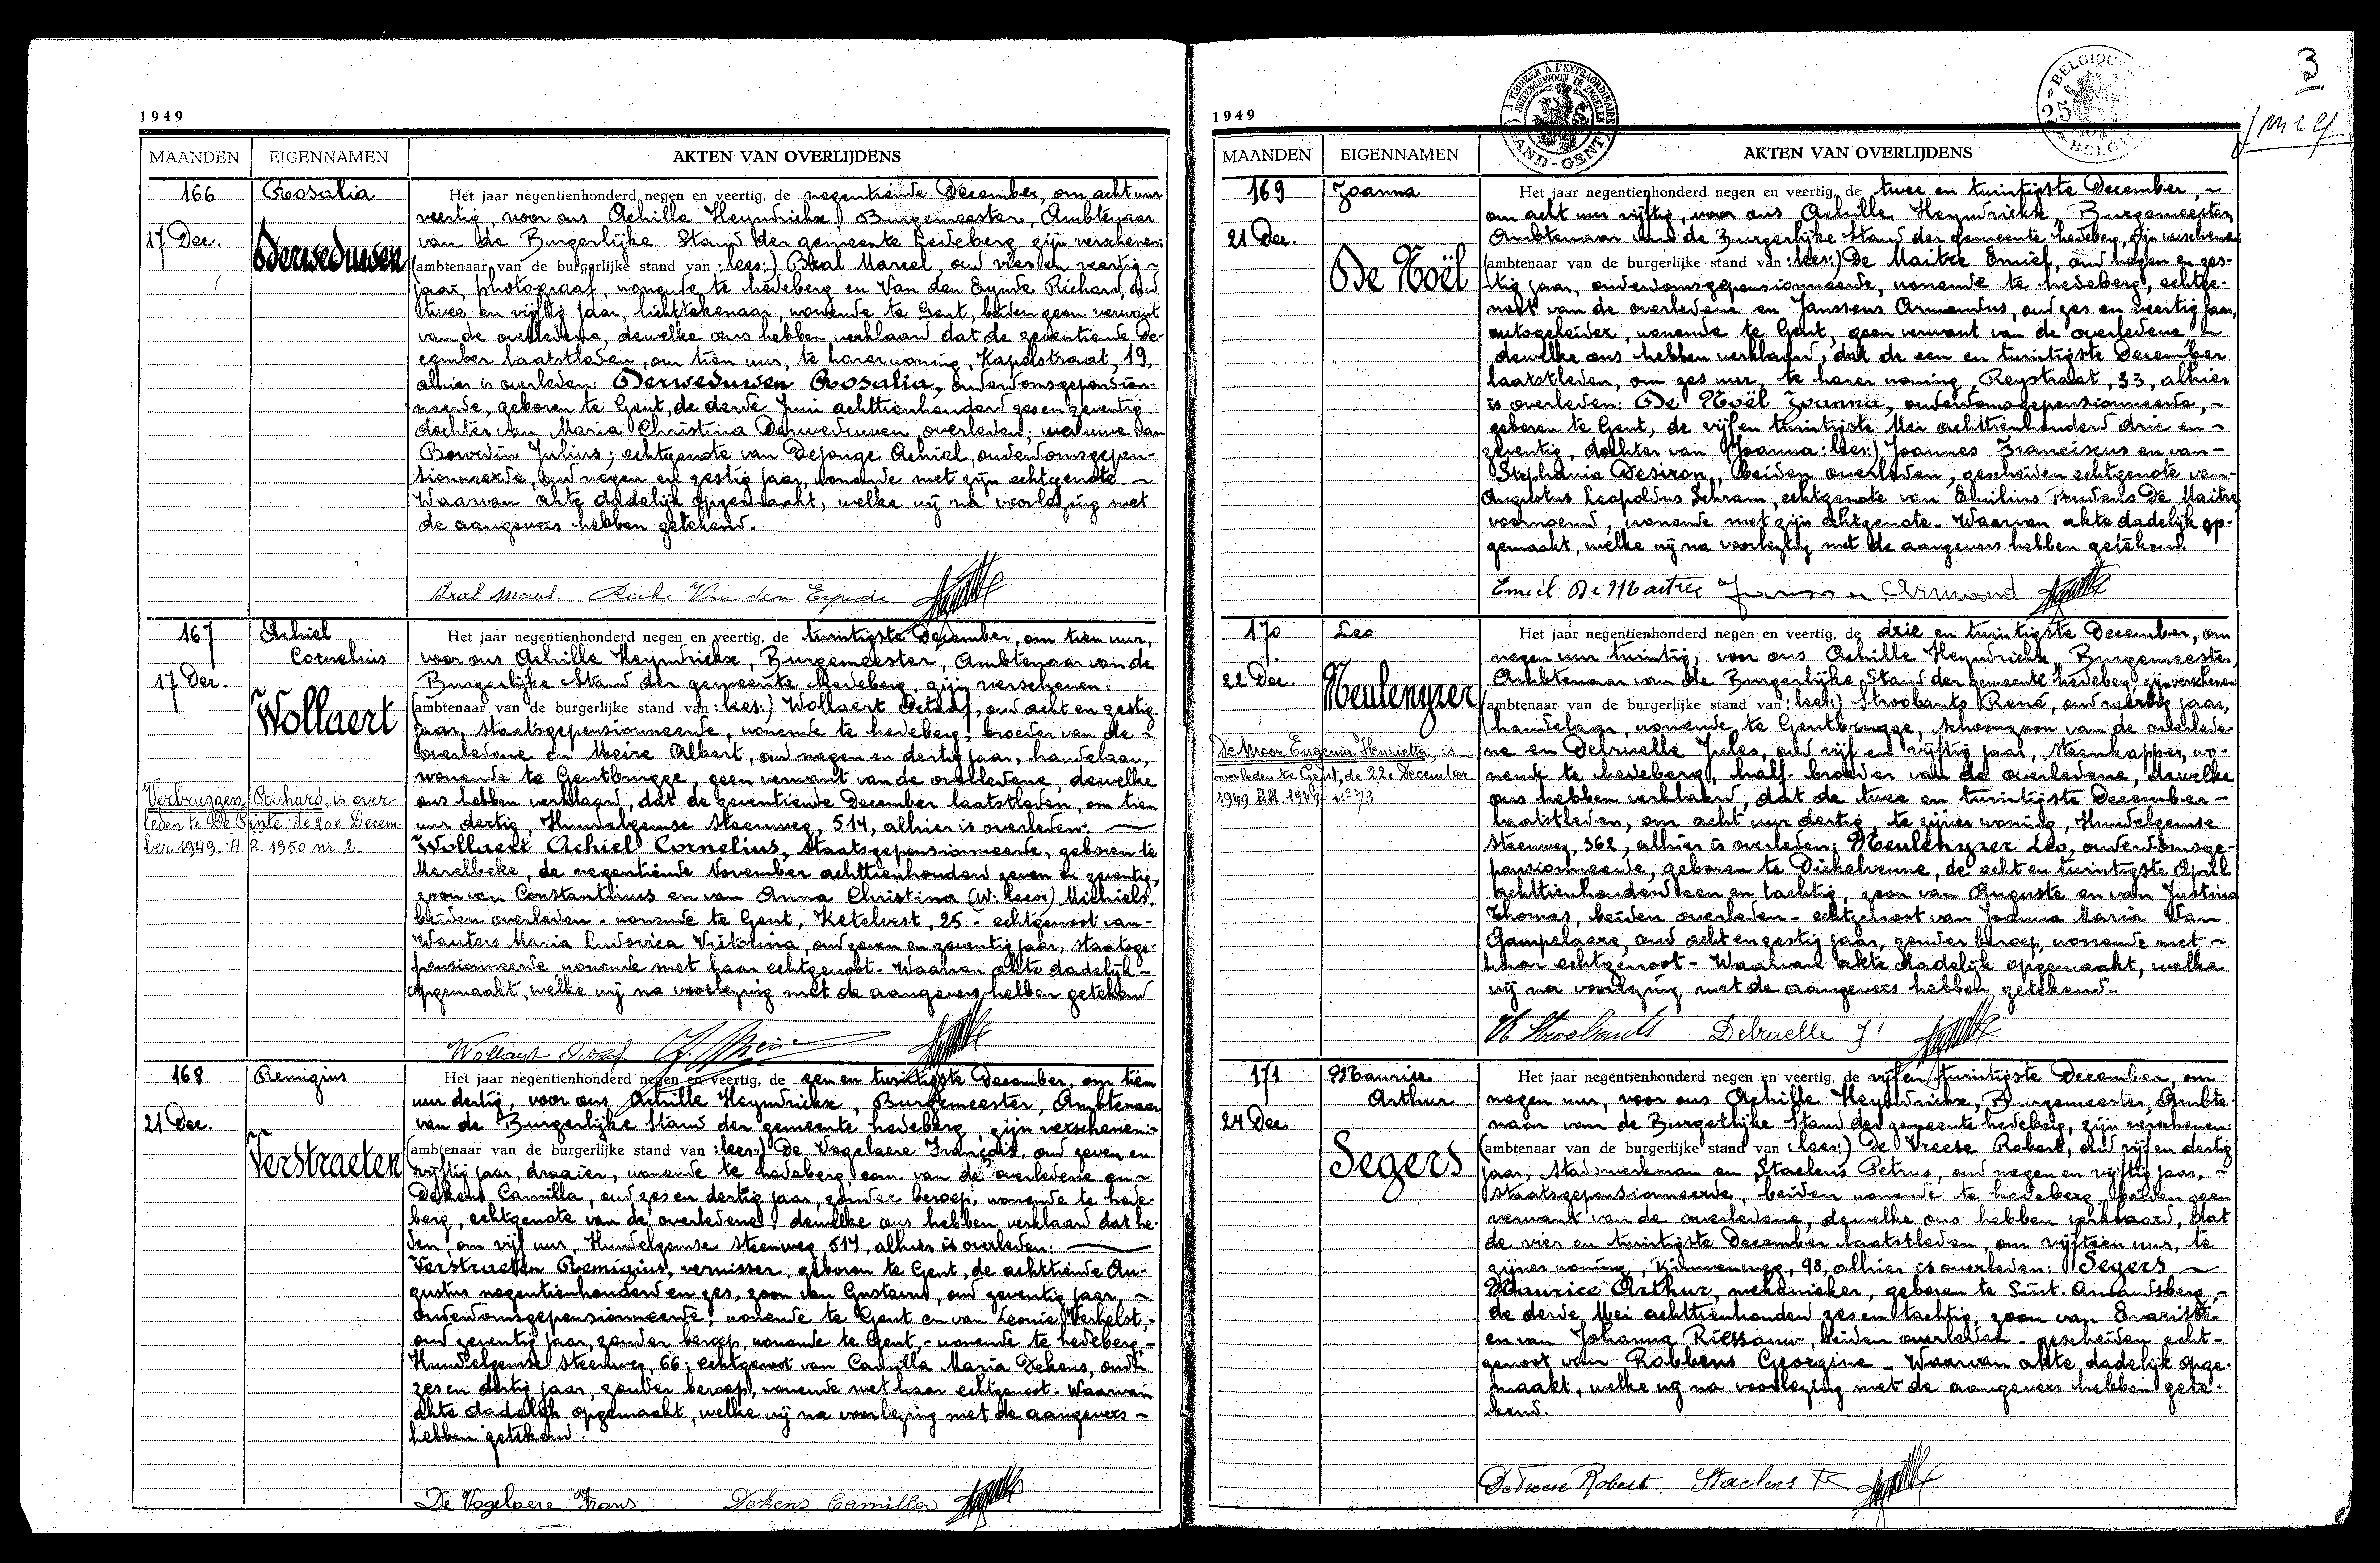 1949
MAANDEN EIGENNAMEN AKTEN VAN OVERLIJDENS
166 Rosalia
17 Dec.
Derweduwen
Het jaar negentienhonderd negen en veertig, de negentiende December, om acht uur
veertig, voor ons Achille Heyndrickx, Burgemeester, Ambtenaar
van de Burgerlijke Stand der gemeente Ledeberg zijn verschenen:
(ambtenaar van de burgerlijke stand van :lees:) Bral Marcel, oud vier en veertig ~
jaar, photograaf, wonende te Ledeberg en Van den Eynde Richard, oud
twee en vijftig jaar, lichttekenaar, wonende te Gent, beiden geen verwant
van de overledene, dewelke ons hebben verklaard dat de zeventiende De-
cember laatstleden, om tien uur, te harer woning, Kapelstraat, 19,
alhier is overleden: Derweduwen Rosalia, ouderdomsgepension-
neerde, geboren te Gent, de derde Juni achttienhonderd zes en zeventig
dochter van Maria Christina Derweduwen, overleden; weduwe van
Bourdin Julius; echtgenote van Dejonge Achiel, ouderdomsgepen-
sionneerde, oud negen en zestig jaar, wonende met zijn echtgenote ~
Waarvan akte dadelijk opgemaakt, welke wij na voorlezing met
de aangevers hebben getekend.
Bral Marcel. Van den Eynde
167 Achiel
Cornelius
17 Dec.
Wollaert
Verbruggen Richard, is over-
leden te De Pinte, de 20e Decem-
ber 1949. A.R. 1950 nr. 2
Het jaar negentienhonderd negen en veertig, de twintigste December, om tien uur,
voor ons Achille Heyndrickx, Burgemeester, Ambtenaar van de
Burgerlijke Stand der gemeente Ledeberg, zijn verschenen:
(ambtenaar van de burgerlijke stand van :lees:) Wollaert Jozef, oud acht en zestig
jaar, staatsgepensionneerde, wonende te Ledeberg, broeder van de ~
overledene en Meire Albert, oud negen en dertig jaar, handelaar,
wonende te Gentbrugge, geen verwant van de overledene, dewelke
ons hebben verklaard, dat de zeventiende December laatstleden, om tien
uur dertig, Hundelgemse Steenweg, 514, alhier is overleden:
Wollaert Achiel Cornelius, staatsgepensionneerde, geboren te
Merelbeke, de negentiende November achttienhonderd zeven en zeventig,
zoon van Constantinus en van Anna Christina (w. lees:) Michiels,
beiden overleden - wonende te Gent, Ketelvest, 25 - echtgenoot van -
Wauters Maria Ludovica Victorina, oud zeven en zeventig jaar, staatsge-
pensionneerde, wonende met haar echtgenoot. Waarvan akte dadelijk -
opgemaakt, welke wij na voorlezing met de aangevers hebben getekend
Wollaert Jozef A. Meire
168 Remigius
21 Dec.
Verstraeten
Het jaar negentienhonderd negen en veertig, de een en twintigste December, om tien
uur dertig, voor ons Achille Heyndrickx, Burgemeester, Ambtenaar
van de Burgerlijke Stand der gemeente Ledeberg zijn verschenen:-
(ambtenaar van de burgerlijke stand van :lees:) De Vogelaere François, oud zeven en
vijftig jaar, draaier, wonende te Ledeberg, oom van de overledene en ~
Dekens Camilla, oud zes en dertig jaar, zonder beroep, wonende te Lede-
berg, echtgenote van de overledene; dewelke ons hebben verklaard dat he-
den, om vijf uur, Hundelgemse Steenweg 514, alhier is overleden:
Verstraeten Remigius, vernisser, geboren te Gent, de achttiende Au-
gustus negentienhonderd en zes, zoon van Gustavus, oud zeventig jaar, ~
ouderdomsgepensionneerde, wonende te Gent en van Leonie Verhelst,-
oud zeventig jaar, zonder beroep, wonende te Gent, - wonende te Ledeberg,-
Hundelgemse Steenweg, 66; echtgenoot van Camilla Maria Dekens, oud
zes en dertig jaar, zonder beroep, wonende met haar echtgenoot. Waarvan
akte dadelijk opgemaakt, welke wij na voorlezing met de aangevers ~
hebben getekend.
De Vogelaere Frans Dekens Camilla
3
1949
MAANDEN EIGENNAMEN AKTEN VAN OVERLIJDENS
169 Joanna
21 Dec.
De Noël
Het jaar negentienhonderd negen en veertig, de twee en twintigste December, ~
om acht uur vijftig, voor ons Achille Heyndrickx, Burgemeester,
Ambtenaar van de Burgerlijke Stand der gemeente Ledeberg, zijn verschenen
(ambtenaar van de burgerlijke stand van :lees:) De Maitre Emiel, oud negen en zes-
tig jaar, ouderdomsgepensionneerde, wonende te Ledeberg, echtge-
noot van de overledene en Janssens Armandus, oud zes en veertig jaar,
autogeleider, wonende te Gent, geen verwant van de overledene ~
dewelke ons hebben verklaard, dat de een en twintigste December
laatstleden, om zes uur, te harer woning, Reystraat, 33, alhier
is overleden: De Noël Joanna, ouderdomsgepensionneerde, ~
geboren te Gent, de vijf en twintigste Mei achttienhonderd drie en ~
zeventig, dochter van (Joanna: lees:) Joannes Franciscus en van -
Stephania Desiron, beiden overleden, gescheiden echtgenote van -
Augustus Leopoldus Schram, echtgenote van Emilius Prudens De Maitre,
voornoemd, wonende met zijn echtgenote. Waarvan akte dadelijk op-
gemaakt, welke wij na voorlezing met de aangevers hebben getekend.
Emiel De Maitre Janssens Armand
170 Leo
22 Dec.
Meulenyzer
De Moor Eugenia Henrietta, is
overleden te Gent, de 22e December
1949 1949 - n° 73
Het jaar negentienhonderd negen en veertig, de drie en twintigste December, om
negen uur twintig, voor ons Achille Heyndrickx, Burgemeester,
Ambtenaar van de Burgerlijke Stand der gemeente Ledeberg zijn verschenen:
(ambtenaar van de burgerlijke stand van :lees:) Stroobants René, oud veertig jaar,
handelaar, wonende te Gentbrugge, schoonzoon van de overlede-
ne en Delruelle Jules, oud vijf en vijftig jaar, steenkapper, wo-
nende te Ledeberg, half-broeder van de overledene, dewelke
ons hebben verklaard, dat de twee en twintigste December -
laatstleden, om acht uur dertig, te zijner woning, Hundelgemse
Steenweg, 362, alhier is overleden: Meulenyzer Leo, ouderdomsge-
pensionneerde, geboren te Dickelvenne, de acht en twintigste April
achttienhonderd een en tachtig, zoon van Auguste en van Justina
Thomas, beiden overleden - echtgenoot van Joanna Maria Van
Gampelaere, oud acht en zestig jaar, zonder beroep, wonende met ~
haar echtgenoot - Waarvan akte dadelijk opgemaakt, welke
wij na voorlezing met de aangevers hebben getekend.
R. Stroobants Delruelle J.
171 Maurice
Arthur
24 Dec.
Segers
Het jaar negentienhonderd negen en veertig, de vijf en twintigste December, om
negen uur, voor ons Achille Heyndrickx, Burgemeester, Ambte-
naar van de Burgerlijke Stand der gemeente Ledeberg, zijn verschenen:
(ambtenaar van de burgerlijke stand van :lees:) De Vreese Robert, oud vijf en dertig
jaar, stadswerkman en Staelens Petrus, oud negen en vijftig jaar, ~
staatsgepensionneerde, beiden wonende te Ledeberg, beiden geen
verwant van de overledene, dewelke ons hebben verklaard, dat
de vier en twintigste December laatstleden, om vijftien uur, te
zijner woning, 98, alhier is overleden: Segers ~
Maurice Arthur, mekanieker, geboren te Sint. Amandsberg, -
de derde Mei achttienhonderd zes en tachtig, zoon van Evariste
en van Johanna Riessauw, beiden overleden - gescheiden echt-
genoot van Robbens Georgine - Waarvan akte dadelijk opge-
maakt, welke wij na voorlezing met de aangevers hebben gete-
kend.
De Vreese Robert Staelens P.